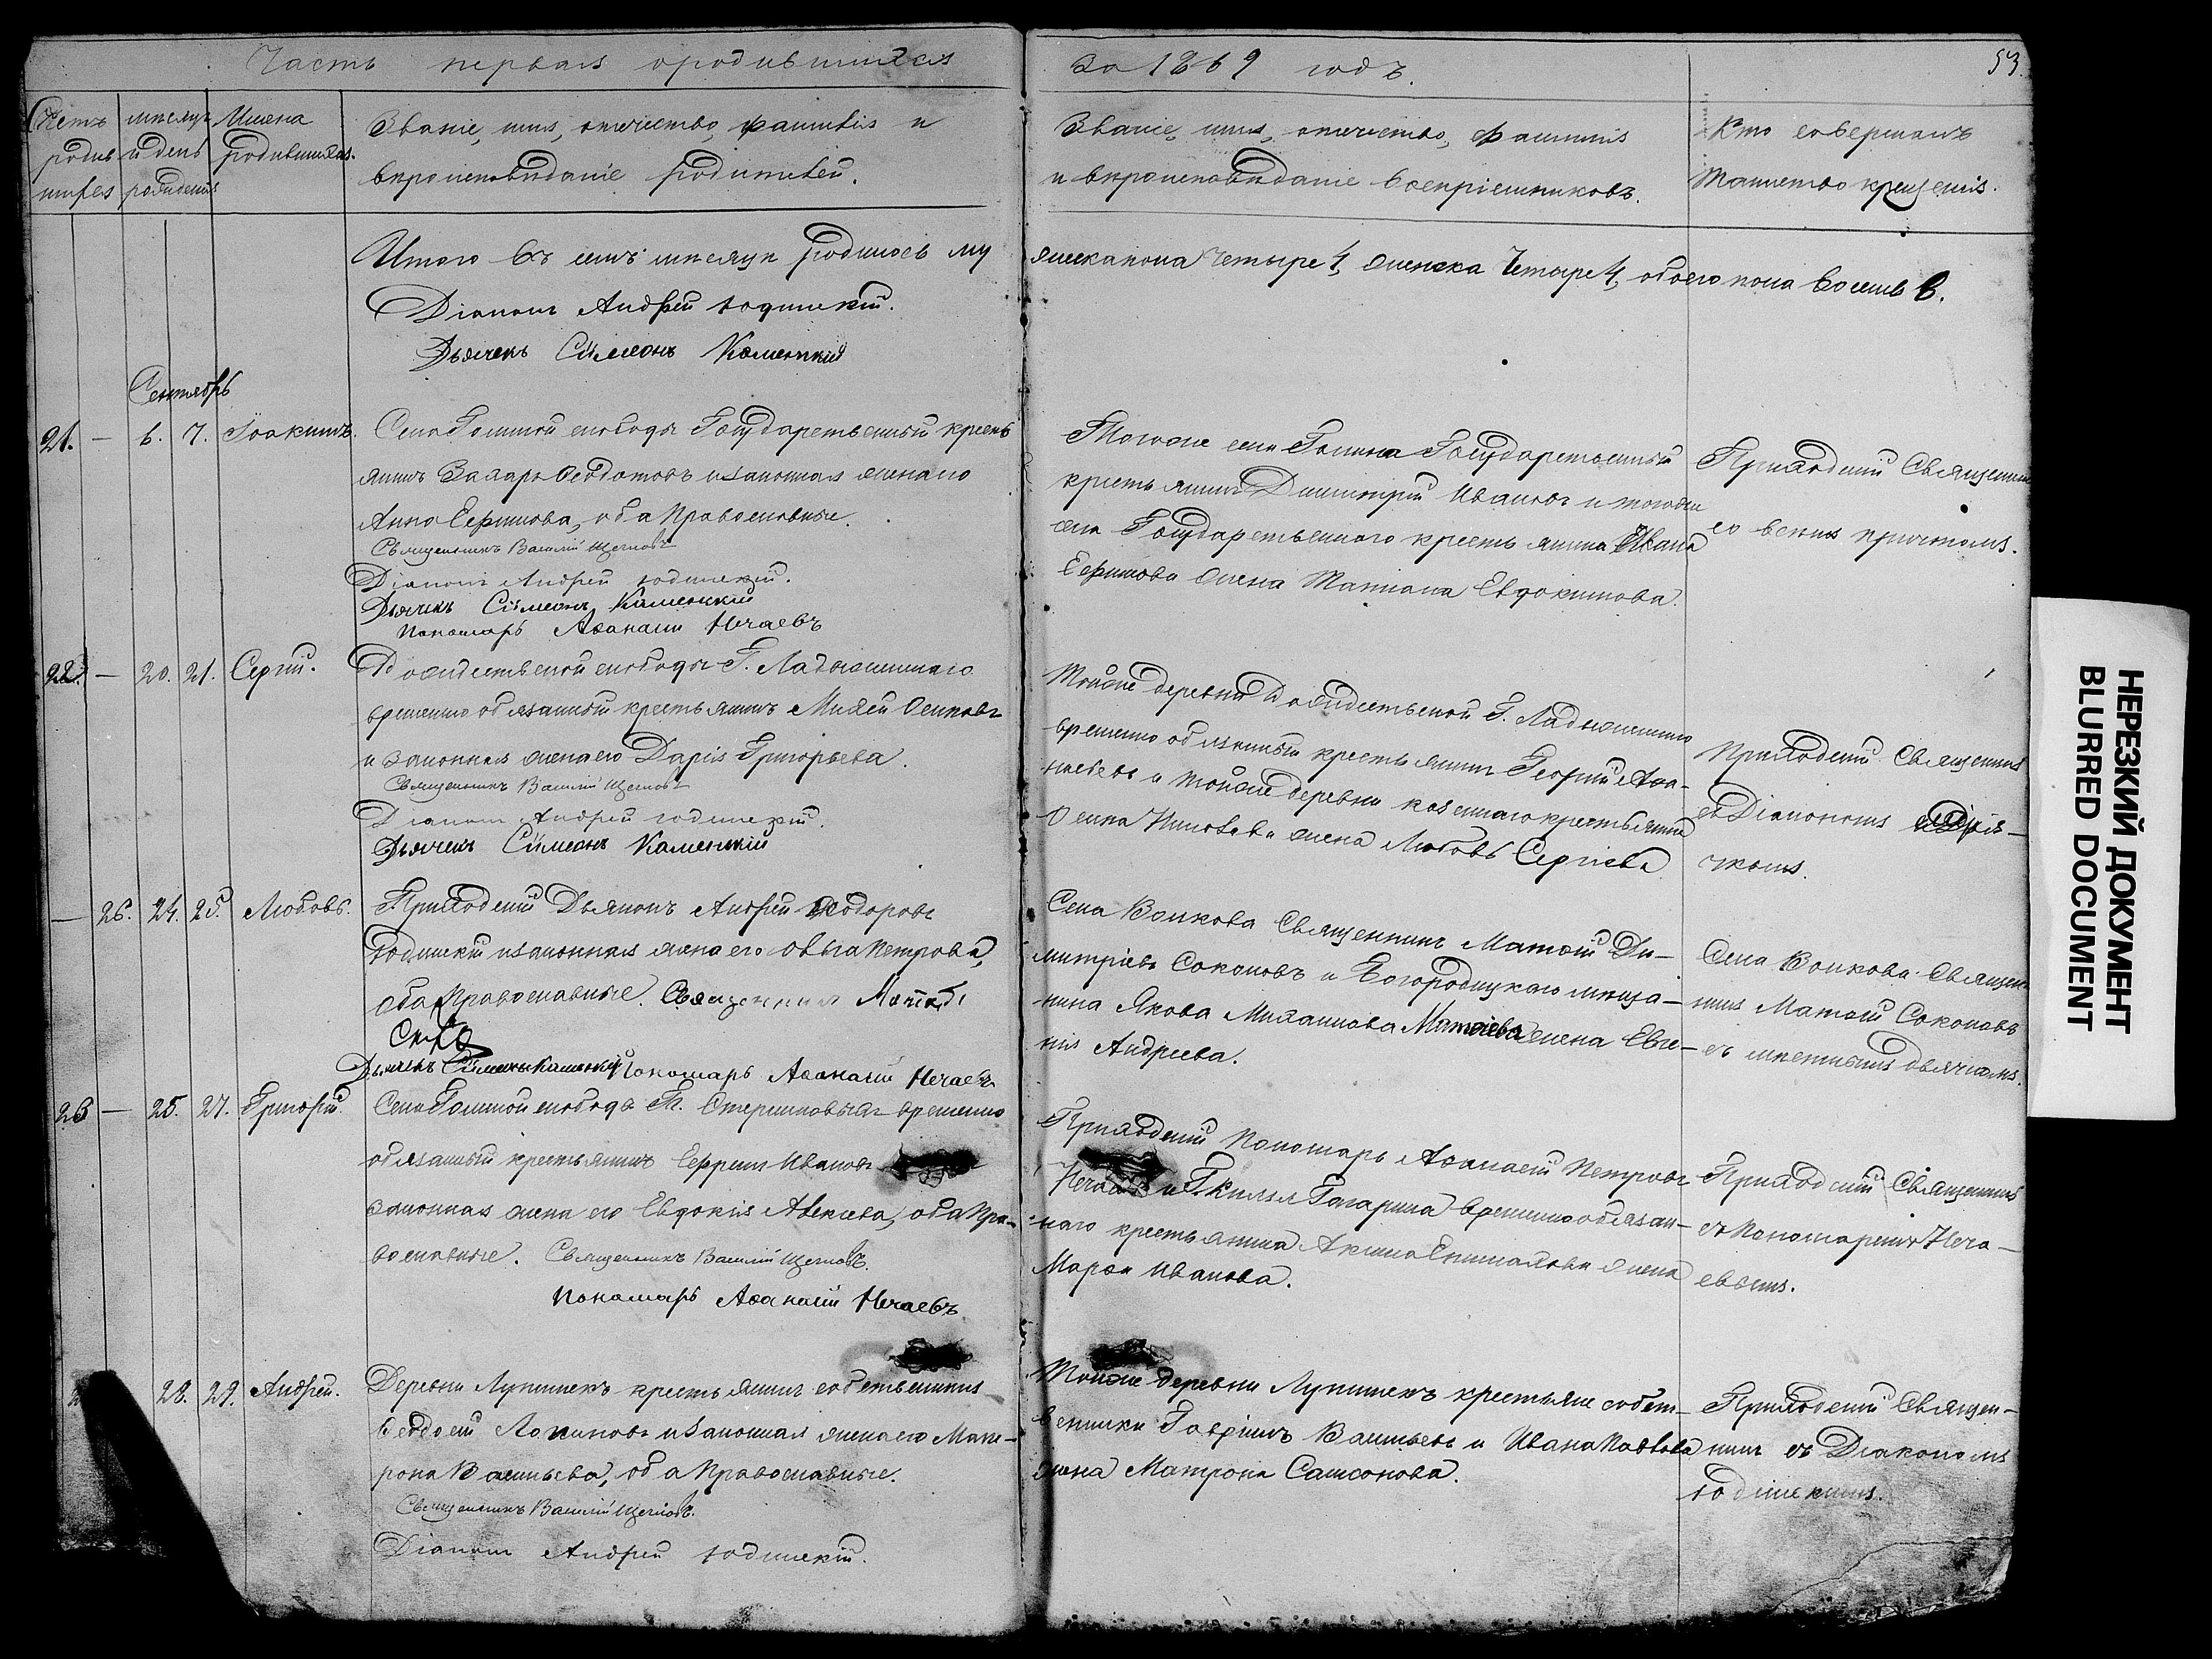 Часть первая о родившихся
За 1869 годъ.
53.
Счетъ родившихся
мѣсяцъ и день рожденія
Имена родившихся.
Званіе, имя, отчество, фамилія и
вѣроисповѣданіе родителей.
Званіе, имя, отчество, фамилія
и вѣроисповѣданіе воспріемниковъ.
Кто совершалъ
таинство крещенія.
Итого въ семъ мѣсяцѣ родилось му
жеска пола четыре 4, женска четыре 4, обоего пола восемь 8.
Діаконъ Андрей
Дьячекъ Сѵмеонъ Каменскій
Сентябрь
21. — 6. 7. Іоакимъ.
Села Голиной слободы Государственный кресть
янинъ Захаръ Ѳедотовъ и законная жена его
Анна Ефимова, оба Православные.
Священникъ Василій Щегловъ
Діаконъ Андрей
Дьячекъ Сѵмеонъ Каменскій
Пономарь Аѳанасій Нечаевъ
Тогоже села Голина Государственный
крестьянинъ Димитрій Ивановъ и тогоже
села Государственнаго крестьянина Ивана
Ефимова жена Татіана Евдокимова.
Приходскій Священникъ
со всѣмъ причтомъ.
22. — 20. 21. Сергій.
Рождественской слободы Г. Ладыженскаго
временно обязанный крестьянинъ Михей Осиповъ
и законная жена его Дарія Григорьева.
Священникъ Василій Щегловъ
Діаконъ Андрей
Дьячекъ Сѵмеонъ Каменскій
Тойже деревни Рождественской Г. Ладыженскаго
временно обязанный крестьянинъ Георгій Аѳа-
насьевъ и тойже деревни казеннаго крестьянина
Осипа жена Любовь Сергіева
Приходскій Священникъ
съ Діакономъ и Дья-
чкомъ.
— 26. 24. 25. Любовь.
Приходскій Діаконъ Андрей Ѳодоровъ
и законная жена его Ольга Петрова,
оба Православные. Священникъ Матѳей
Дьячекъ Сѵмеонъ Каменскій Пономарь Аѳанасій Нечаевъ
Села Волкова Священникъ Матѳей Ди-
митріевъ Соколовъ и Богородицкаго мѣща-
нина Якова Михаилова Матѳіева жена Евге-
нія Андреева.
Села Волкова Священ-
никъ Матѳей Соколовъ
съ мѣстнымъ дьячкомъ.
23 — 25. 27. Григорій.
Села Голиной слободы Г. временно
обязанный крестьянинъ Ефремъ Ивановъ
законная жена его Евдокія Алексѣева, оба Пра-
вославные. Священникъ Василій Щегловъ.
Пономарь Аѳанасій Нечаевъ
Приходскій Пономарь Аѳанасій Петровъ
Нечаевъ и Г. Князя Гагарина временно обязан-
наго крестьянина Акима жена
Марѳа Иванова.
Приходскій Священникъ
съ Пономаремъ Неча-
евымъ.
28. 29. Андрей.
Деревни Лупишекъ крестьянинъ собственникъ
Ѳеодосій Логиновъ и законная жена его Мат-
рона Васильева, оба Православные.
Священникъ Василій Щегловъ.
Діаконъ Андрей
Тойже деревни Лупишекъ крестьяне собст-
венники Гавріилъ Васильевъ и Ивана Павлова
жена Матрона Самсонова.
Приходскій Священ-
никъ съ Діакономъ
НЕРЕЗКИЙ ДОКУМЕНТ
BLURRED DOCUMENT